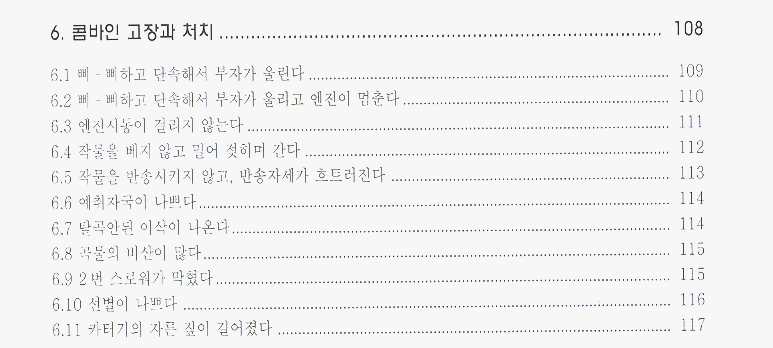 6. 콤바인 고장과 처치 ........ 108
6.1 삐 - 삐하고 단속해서 부자가 울린다 ........ 109
6.2 삐 - 삐하고 단속해서 부자가 울리고 엔진이 멈춘다 ........ 110
6.3 엔진시동이 걸리지 않는다 ........ 111
6.4 작물을 베지 않고 밀어 젖히며 간다 ........ 112
6.5 작물을 반송시키지 않고, 반송자세가 흐트러진다 ........ 113
6.6 예취자국이 나쁘다 ........ 114
6.7 탈곡안된 이삭이 나온다 ........ 114
6.8 곡물의 비산이 많다 ........ 115
6.9 2번 스로워가 막혔다 ........ 115
6.10 선별이 나쁘다 ........ 116
6.11 카터기의 자른 짚이 길어졌다 ........ 117